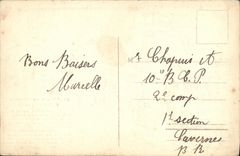 Bons Baisers
Marcelle
Mr Chapuis A
10e B C P
2e comp
1re section
Saverne
B R